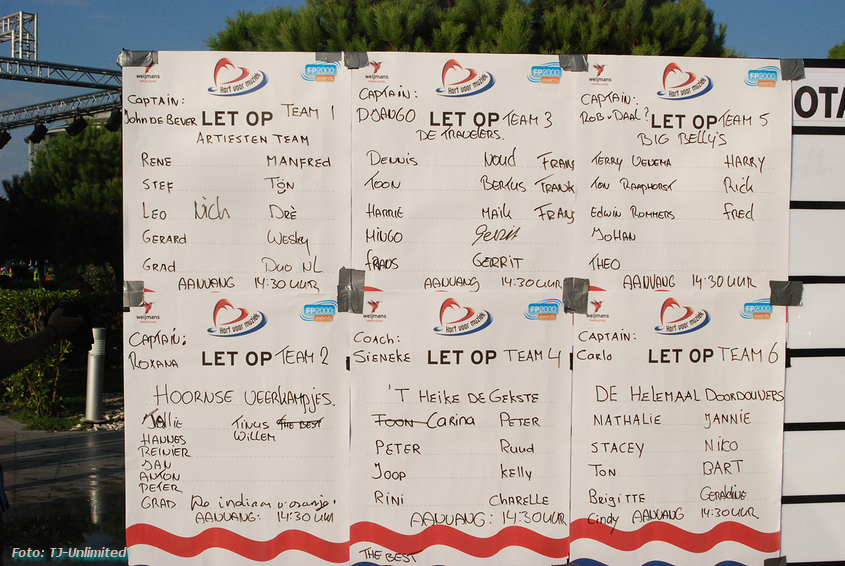 weijmans
Hart voor muziek
FP2000
events
CAPTAIN:
JOHN DE BEVER
LET OP TEAM 1
ARTIESTEN TEAM
RENE MANFRED
STEF TON
LEO Nich DRÈ
GERARD WESLEY
GRAD DUO NL
AANVANG 14:30 UUR
weijmans
Hart voor muziek
FP2000
events
CAPTAIN:
DJANGO
LET OP TEAM 3
DE TRAVELERS.
DENNIS NOUD FRANS
TOON BERTUS FRANK
HARRIE MAIK FRANS
MINGO Gerrit
FRADS GERRIT
AANVANG 14:30 UUR
weijmans
Hart voor muziek
FP2000
events
CAPTAIN:
ROB v DAAL?
LET OP TEAM 5
BIG BELLY'S
TERRY VENEMA HARRY
TON RAAPHORST RICK
EDWIN ROMMERS FRED
JOHAN
THEO
AANVANG 14:30 UUR
OTA
weijmans
Hart voor muziek
FP2000
events
CAPTAIN:
ROXANA
LET OP TEAM 2
HOORNSE VEERHAPJES.
JOLLIE TINUS THE BEST
HANNES WILLEM
REINIER
JAN
ANTON
PETER
GRAD De indiaan v oranje!
AANVANG: 14:30 UUR
weijmans
Hart voor muziek
FP2000
events
COACH:
SIENEKE
LET OP TEAM 4
'T HEIKE DE GEKSTE
TOON CARINA PETER
PETER RUUD
JOOP KELLY
RINI CHARELLE
AANVANG: 14:30 UUR
THE BEST
weijmans
Hart voor muziek
FP2000
events
CAPTAIN:
CARLO
LET OP TEAM 6
DE HELEMAAL DOORDOUVERS
NATHALIE JANNIE
STACEY NICO
TON BART
BRIGITTE GERALDINE
Cindy AANVANG 14:30 UUR
Foto: TJ-Unlimited